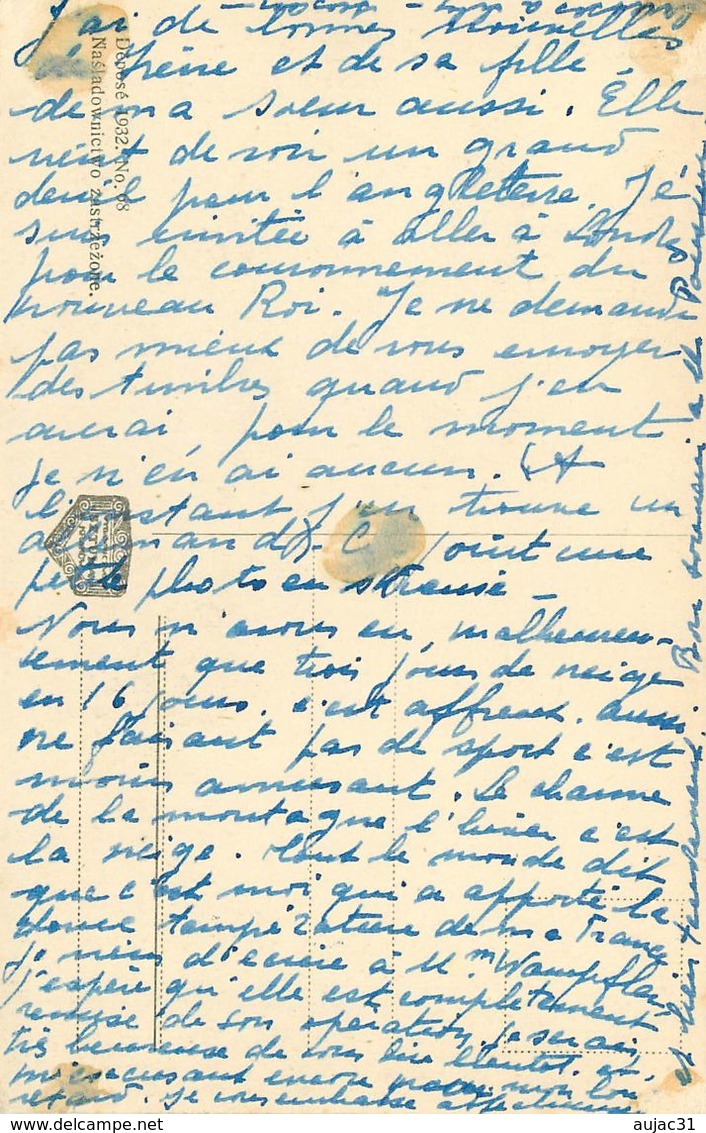 J'ai de bonnes nouvelles
d'Irène et de sa fille
de ma soeur aussi. Elle
vient de voir un grand
deuil pour l'angleterre. Je
suis invitée à aller à Londres
pour le couronnement du
nouveau Roi. Je ne demande
pas mieux de vous envoyer
des timbres quand j'en
aurai, pour le moment
je n'en ai aucun. (A
l'instant j'en trouve un
allemand). Ci joint une
petite photo en
Nous n'avons eu, malheureu-
sement que trois jours de neige
en 16 jours, c'est affreux, aussi
ne faisant pas de sport c'est
moins amusant. Le charme
de la montagne l'hiver c'est
la neige. Tout le monde dit
que c'est moi qui a apporté la
douce température de ma France
je viens d'écrire à Mme
j'espère qu'elle est complètement
remise de son opération, je serais
très heureuse de vous lire bientôt. en
m'excusant encore pour mon long
retard. Je vous embrasse affectueuse
et bien tendrement. Bon souvenir à
Déposé 1932. No. 68
Naśladownictwo zastrzeżone.
aujac31